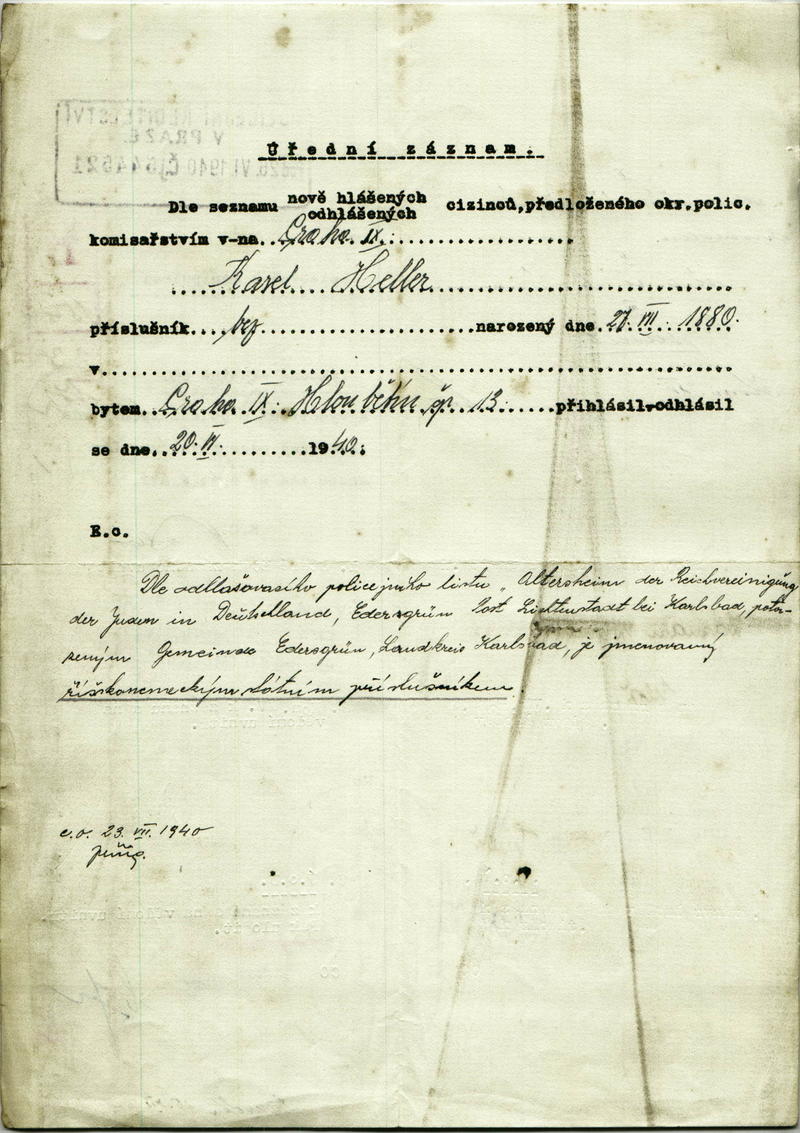 Úřední záznam.
Dle seznamu nově hlášených odhlášených cizinců, předloženého okr. polic.
komisařstvím v-na..Praha IX.......................
....Karel....Heller..............................
příslušník....bez.....................narozený dne.27. VII. 1880.
v..................................................
bytem..Praha IX. Hloubětín čp. 13......přihlásil-odhlásil
se dne..20. VI...........1940.
E.o.
Dle odhlašovacího policejního listu „Altersheim der Reichvereinigung
der Juden in Deutschland, Edersgrün Post Lichtenstadt bei Karlsbad,
Gemeinde Edersgrün, Landkreis Karlsbad, je jmenovaný
říšskoněmeckým státním příslušníkem.
e.o. 23. VII. 1940